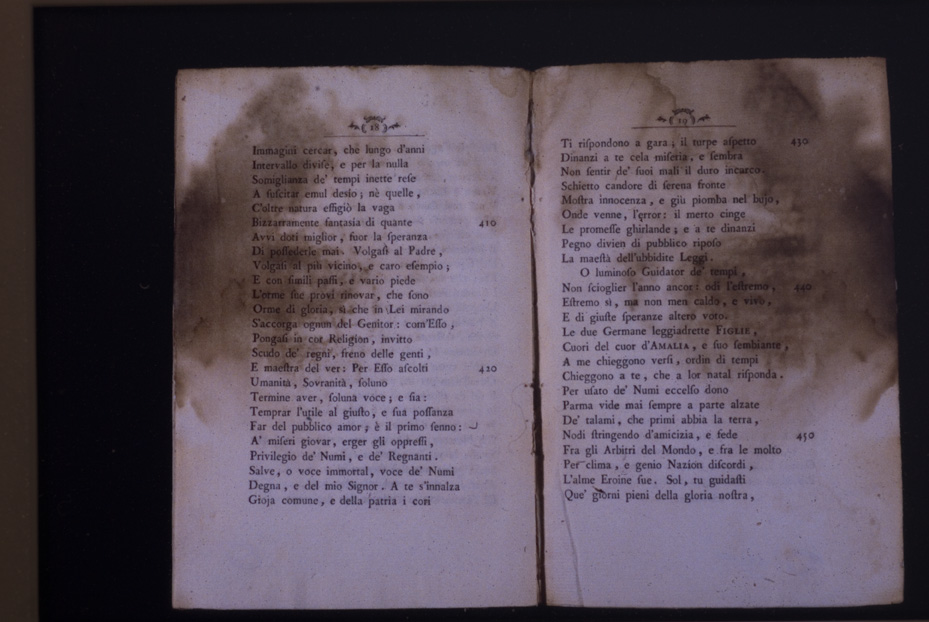 ( 18 )
Immagini cercar, che lungo d'anni
Intervallo diviſe, e per la nulla
Somiglianza de' tempi inette reſe
A ſuſcitar emul desìo; nè quelle,
C'oltre natura effigiò la vaga
Bizzarramente fantasia di quante 410
Avvi doti miglior, fuor la ſperanza
Di poſſederle mai. Volgaſi al Padre,
Volgaſi al più vicino, e caro eſempio;
E con ſimili paſſi, e vario piede
L'orme ſue provi rinovar, che ſono
Orme di gloria, sì che in Lei mirando
S'accorga ognun del Genitor: com'Eſſo,
Pongaſi in cor Religion, invitto
Scudo de' regni, freno delle genti,
E maeſtra del ver: Per Eſſo aſcolti 420
Umanità, Sovranità, ſoluno
Termine aver, ſoluna voce; e ſia:
Temprar l'utile al giuſto, e ſua poſſanza
Far del pubblico amor, è il primo ſenno:
A' miſeri giovar, erger gli oppreſſi,
Privilegio de' Numi, e de' Regnanti.
Salve, o voce immortal, voce de' Numi
Degna, e del mio Signor. A te s'innalza
Gioja comune, e della patria i cori
( 19 )
Ti riſpondono a gara; il turpe aſpetto 430
Dinanzi a te cela miſeria, e ſembra
Non ſentir de' ſuoi mali il duro incarco.
Schietto candore di ſerena fronte
Moſtra innocenza, e giù piomba nel bujo,
Onde venne, l'error: il merto cinge
Le promeſſe ghirlande; e a te dinanzi
Pegno divien di pubblico ripoſo
La maeſtà dell'ubbidite Leggi.
O luminoſo Guidator de' tempi,
Non ſcioglier l'anno ancor: odi l'eſtremo, 440
Eſtremo sì, ma non men caldo, e vivo,
E di giuſte ſperanze altero voto.
Le due Germane leggiadrette FIGLIE,
Cuori del cuor d'AMALIA, e ſuo ſembiante,
A me chieggono verſi, ordin di tempi
Chieggono a te, che a lor natal riſponda.
Per uſato de' Numi eccelſo dono
Parma vide mai ſempre a parte alzate
De' talami, che primi abbia la terra,
Nodi ſtringendo d'amicizia, e fede 450
Fra gli Arbitri del Mondo, e fra le molto
Per clima, e genio Nazion diſcordi,
L'alme Eroine ſue. Sol, tu guidaſti
Que' giorni pieni della gloria noſtra,